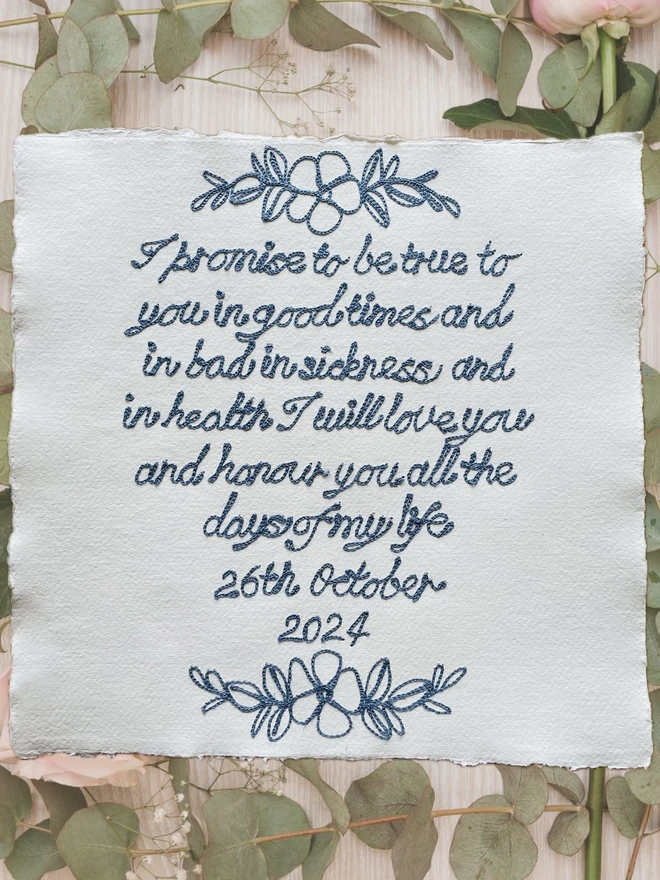 I promise to be true to
you in good times and
in bad in sickness and
in health I will love you
and honour you all the
days of my life
26th October
2024